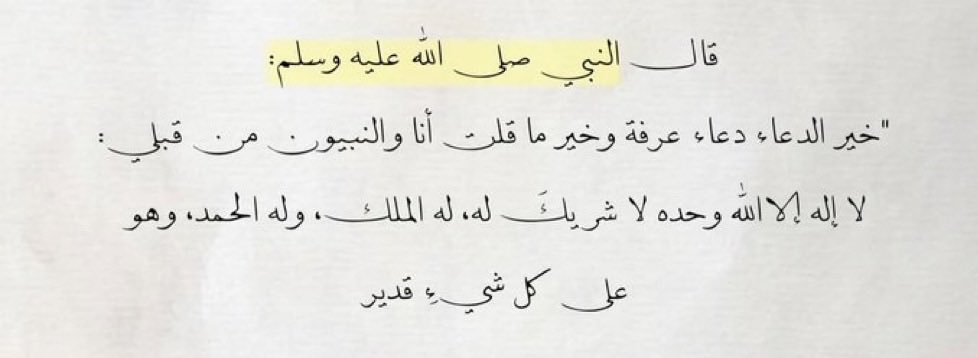 قال النبي صلى الله عليه وسلم:
"خير الدعاء دعاء عرفة وخير ما قلت أنا والنبيون من قبلي:
لا إله إلا الله وحده لا شريكَ له، له الملك، وله الحمد، وهو
على كل شيءٍ قدير